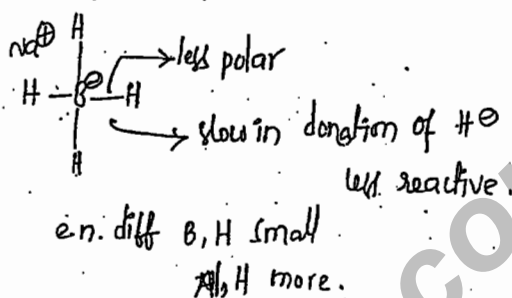 Na⊕ H
less polar
H — B⊖ — H
slow in donation of H⊖
H
less reactive.
en. diff B, H small
Al, H more.
co